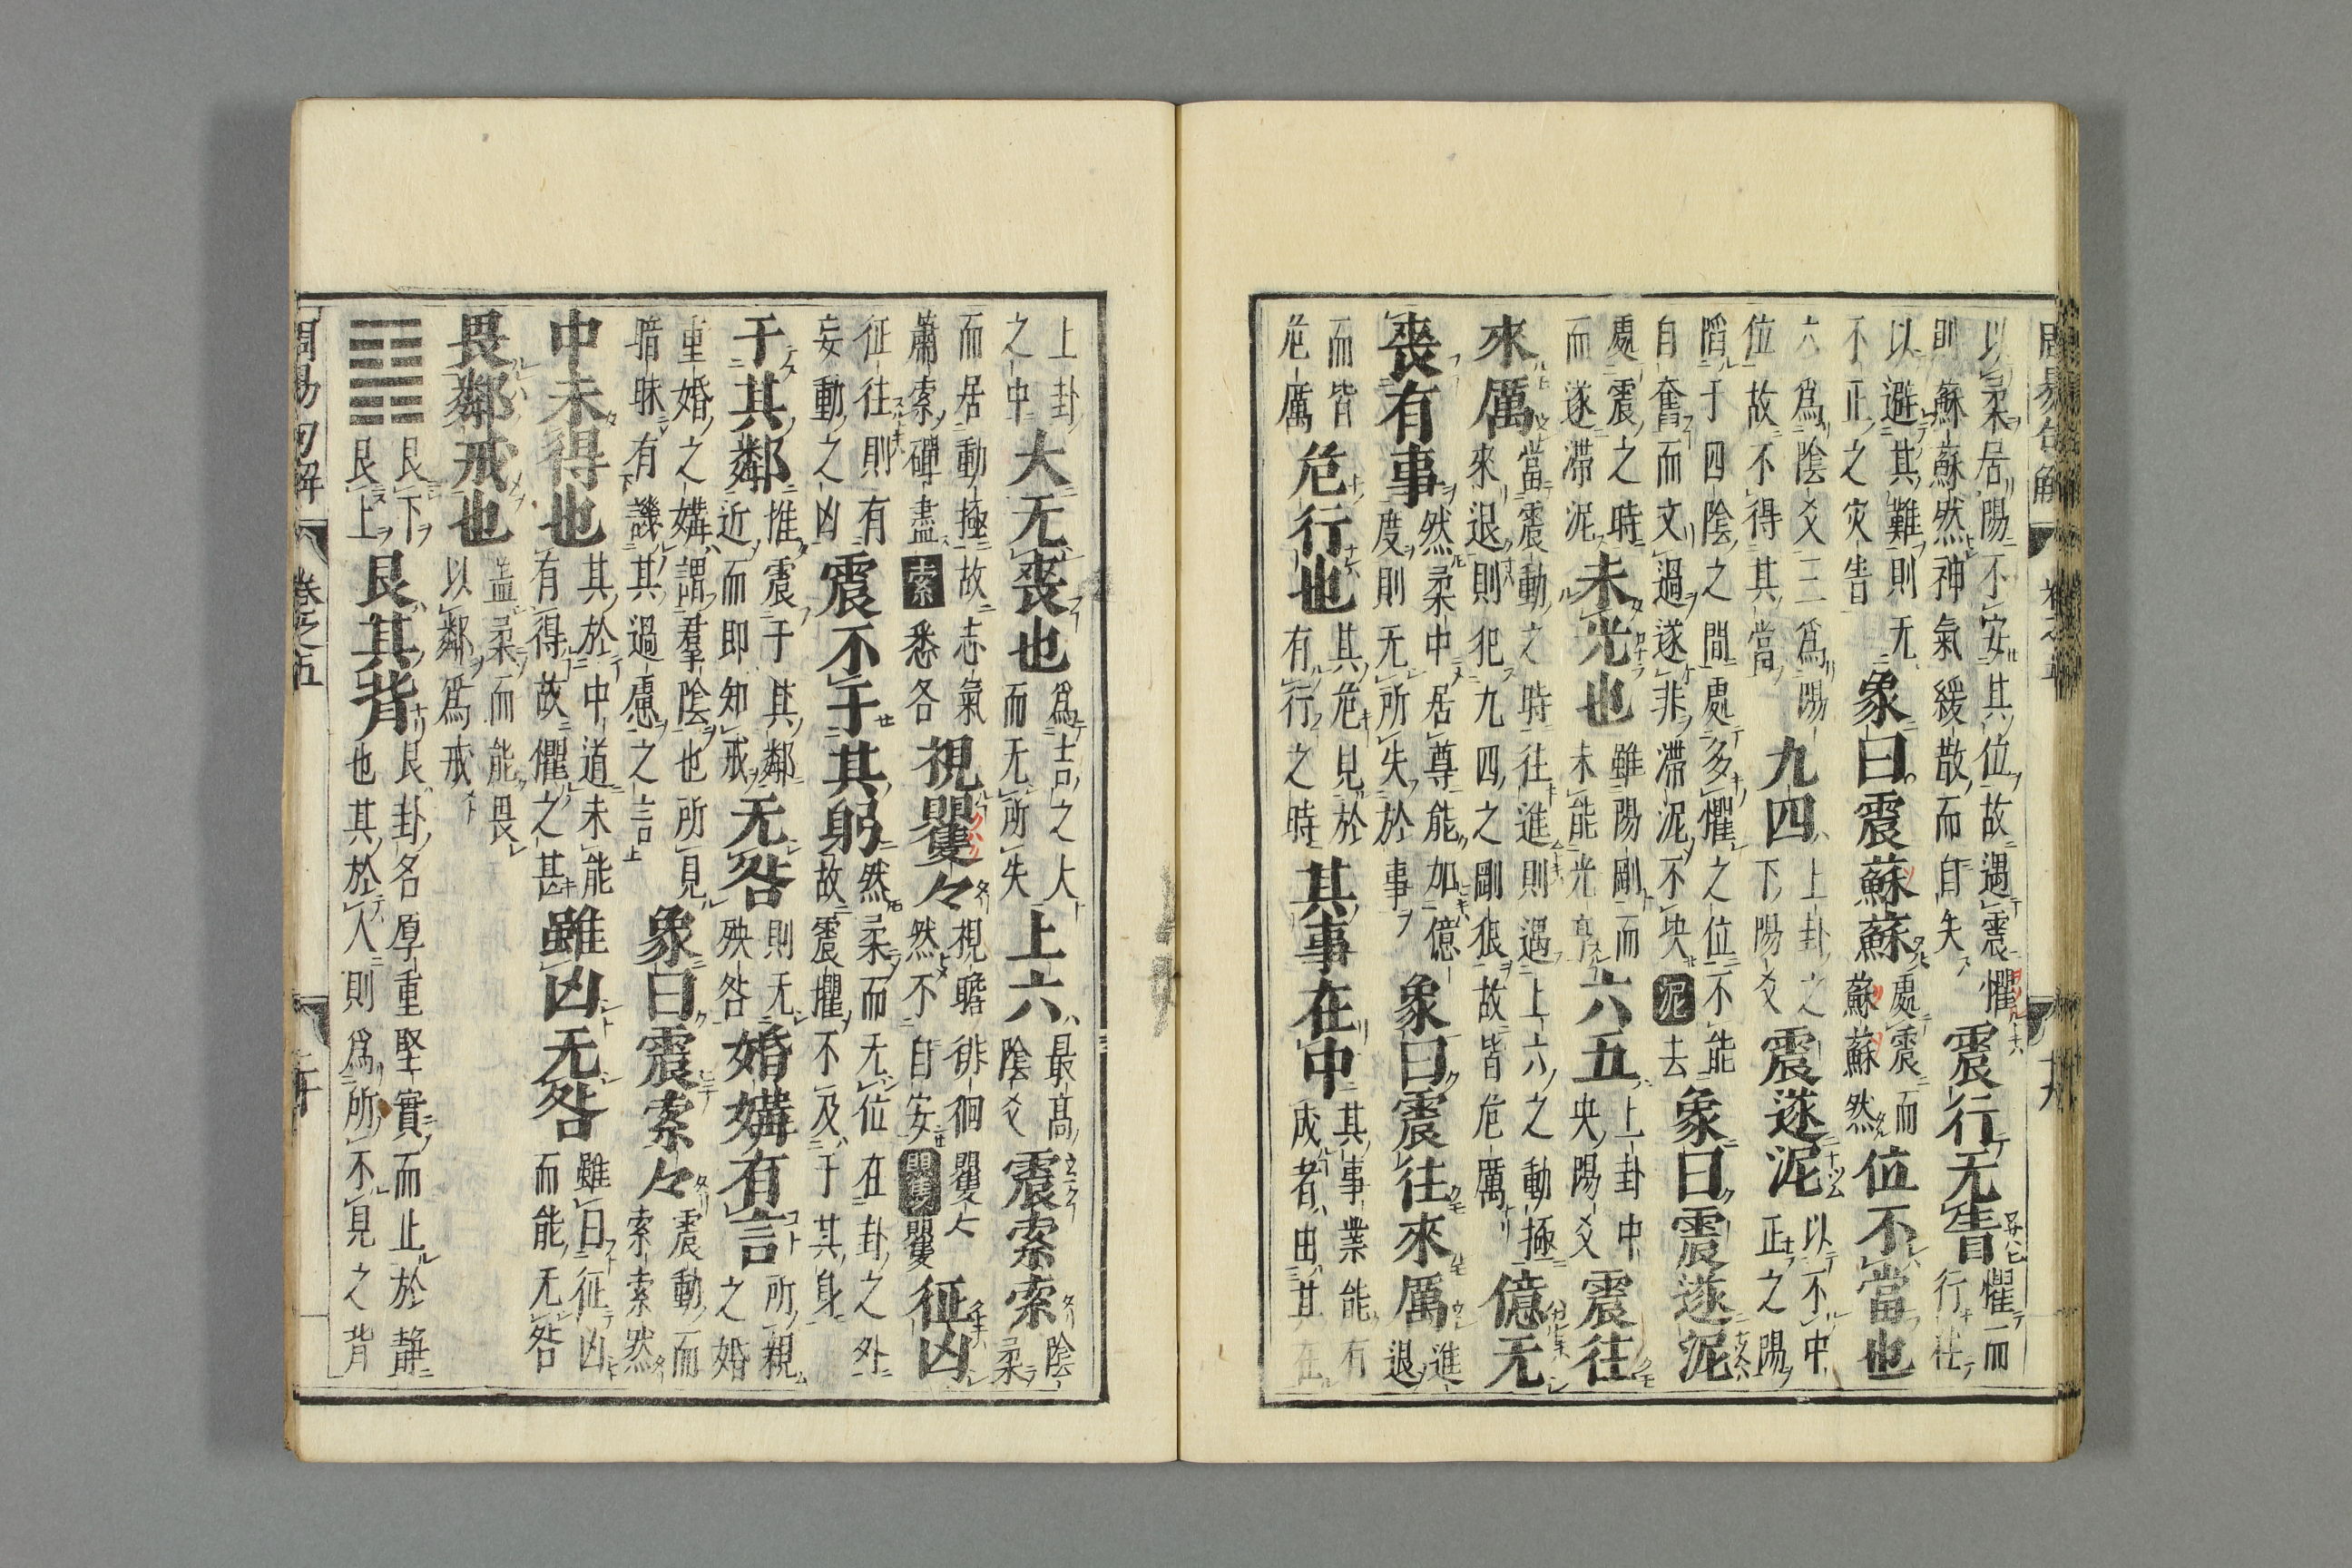 周易句解 卷之五 十九
以柔居陽不安其位故遇震懼則蘇蘇然神氣緩散而自失震行无眚懼而行往
以避其難則无不正之灾眚象曰震蘇蘇處震而蘇蘇然位不當也
六爲陰爻三爲陽位故不得其當九四上卦之下陽爻震遂泥以不中正之陽
滔于四陰之間處多懼之位不能自奮而文過遂非滯泥不泥去象曰震遂泥
處震之時而遂滞泥未光也雖陽剛而未能光亨六五上卦中央陽爻震往
來厲當震動之時往進則遇上六之動極來退則犯九四之剛狠故皆危厲億无
喪有事然柔中居尊能加億度則无所失於事象曰震往來厲進退
而皆危厲危行也其危見於有行之時其事在中其事業能有成者由其在
上卦之中大无喪也爲吉之大而无所失上六最高陰爻震索索陰柔
而居動極故志氣蕭索殫盡索悉各視矍々視瞻徘徊矍々然不自安矍矍征凶
征往則有妄動之凶震不于其躬然柔而无位在卦之外故震懼不及于其身
于其鄰推震于其鄰近而即知戒无咎則无殃咎婚媾有言所親之婚
重婚之媾謂羣陰也所見暗昧有譏其過慮之言象曰震索々震動而索索然
中未得也其於中道未能有得故懼之甚雖凶无咎雖曰征凶而能无咎
畏鄰戒也盖柔而能畏以鄰爲戒
艮下艮上艮其背艮卦名厚重堅實而止於靜也其於人則爲所不見之背
周易句解 卷之五 二十